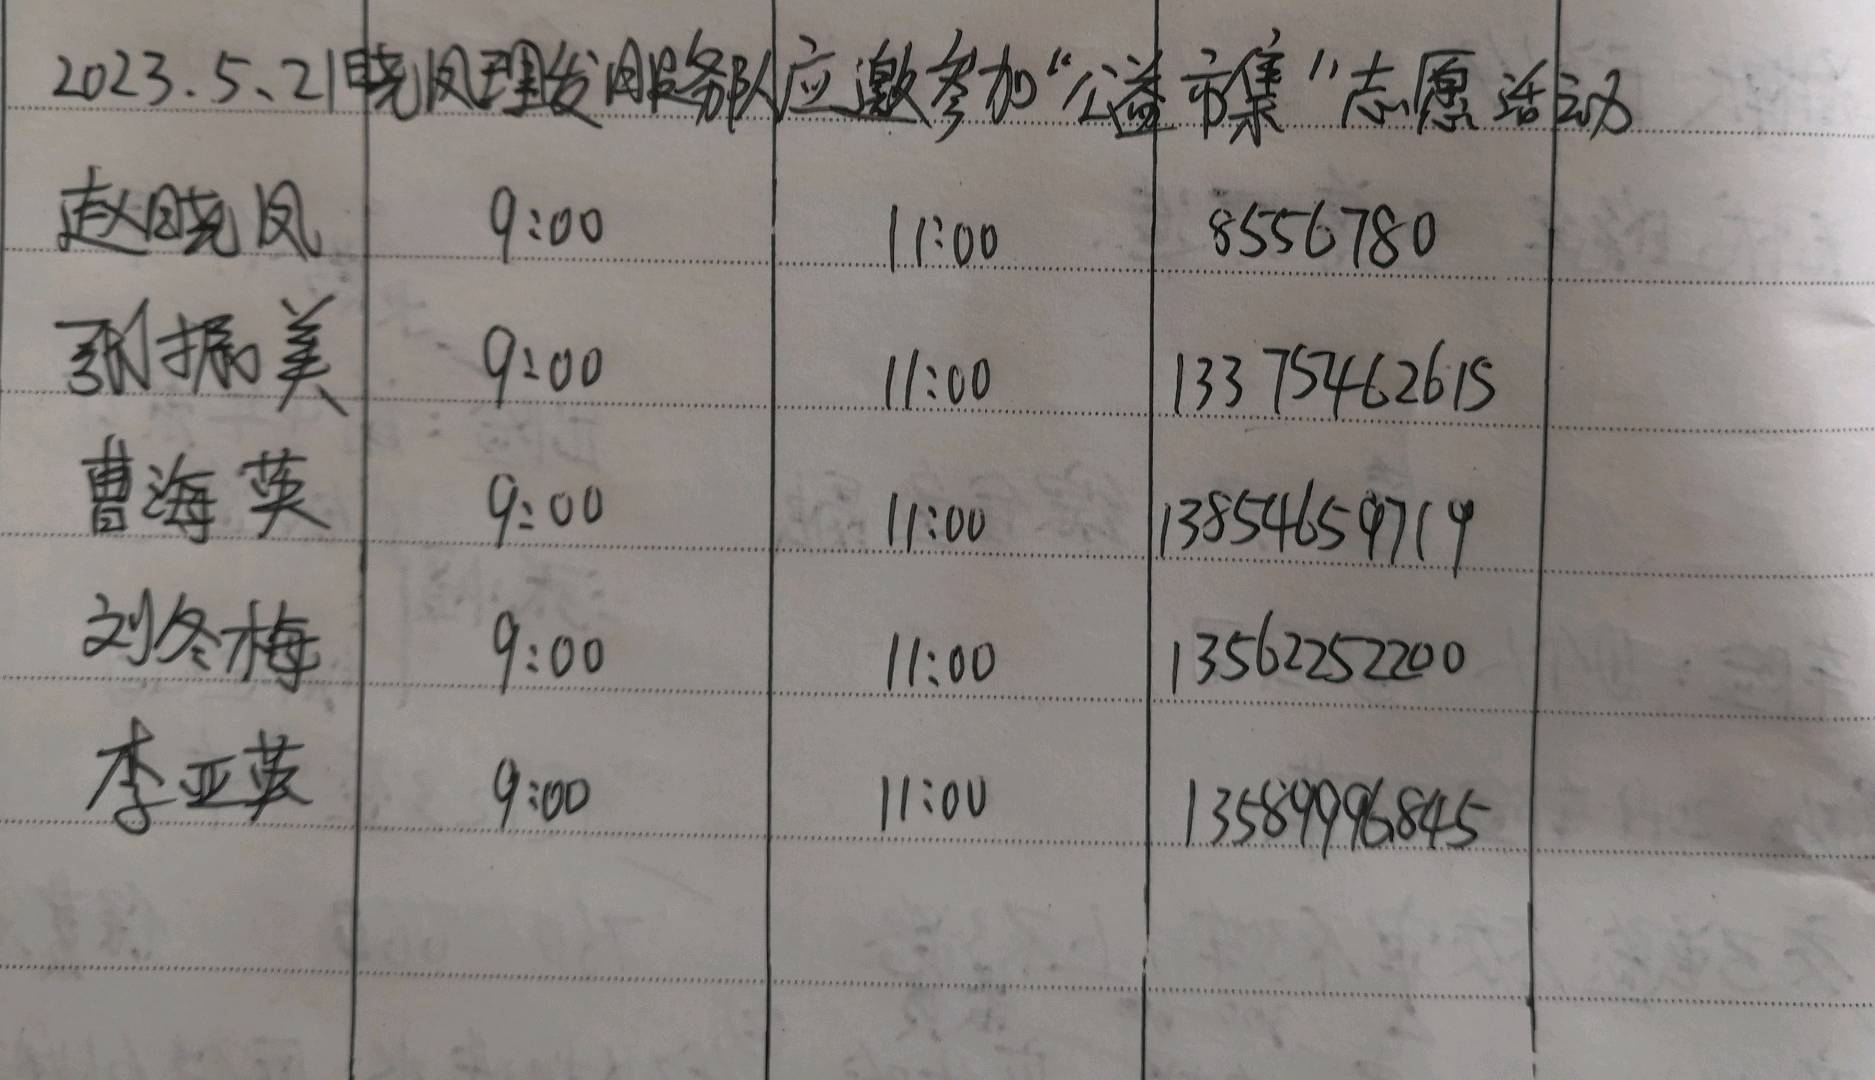 2023.5、21日晓凤理发服务队应邀参加“公益市集”志愿活动
赵晓凤 9:00 11:00 8556780
张振美 9:00 11:00 133 75462615
曹海英 9:00 11:00 13854659719
刘冬梅 9:00 11:00 13562252200
李亚英 9:00 11:00 13589996845